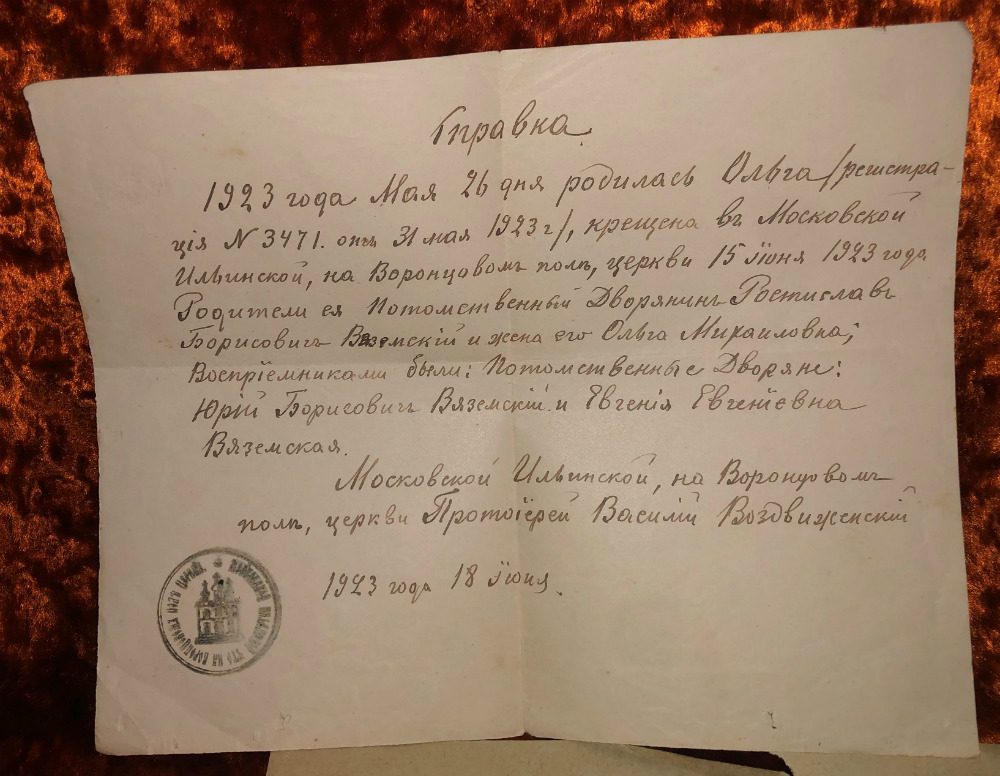 Справка.
1923 года Мая 26 дня родилась Ольга /регистра-
ція N 3471. отъ 31 мая 1923 г/, крещена въ Московской
Ильинской, на Воронцовомъ полѣ, церкви 15 Іюня 1923 года
Родители ея Потомственный Дворянинъ Ростиславъ
Борисовичъ Вяземскій и жена его Ольга Михаиловна;
Воспріемниками были: Потомственные Дворяне:
Юрій Борисовичъ Вяземскій и Евгенія Евгеніевна
Вяземская.
Московской Ильинской, на Воронцовомъ
полѣ, церкви Протоіерей Василій Воздвиженскій
1923 года 18 Іюня.